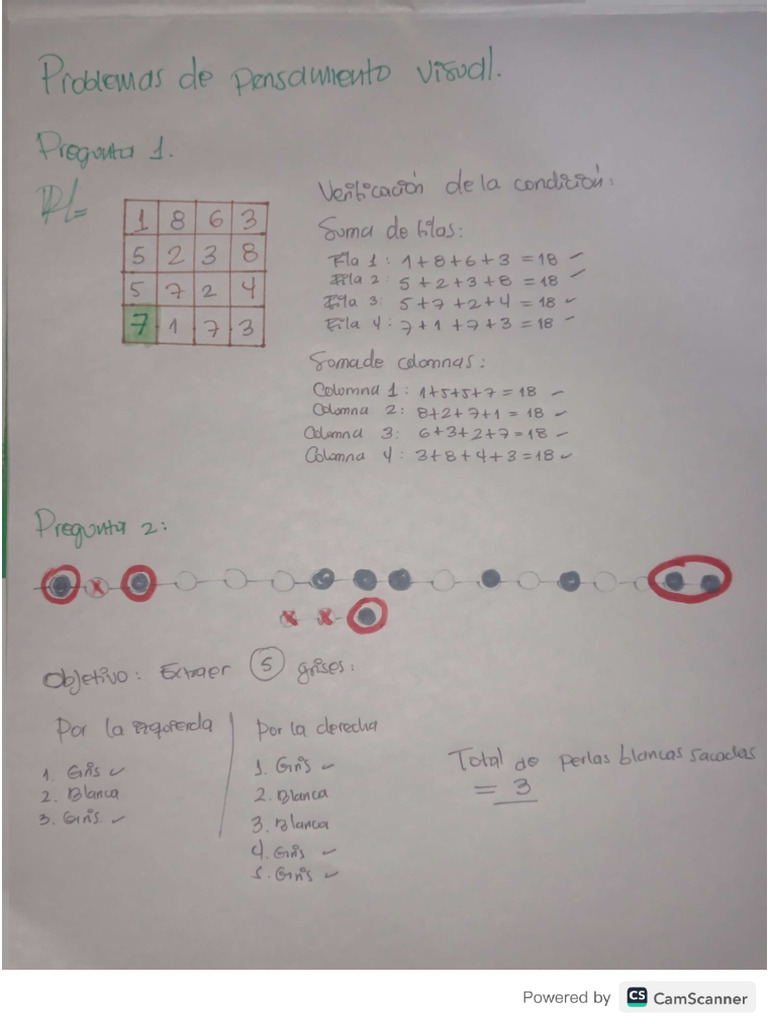 Problemas de pensamiento visual.
Pregunta 1.
R/=
1 8 6 3
5 2 3 8
5 7 2 4
7 1 7 3
Verificación de la condición:
Suma de filas:
Fila 1: 1+8+6+3 =18
Fila 2: 5+2+3+8 =18
Fila 3: 5+7+2+4 =18
Fila 4: 7+1+7+3 =18
Suma de columnas:
Columna 1: 1+5+5+7=18
Columna 2: 8+2+7+1 = 18
Columna 3: 6+3+2+7=18
Columna 4: 3+8+4+3=18
Pregunta 2:
Objetivo: Extraer 5 grises.
Por la izquierda
1. Gris ✓
2. Blanca
3. Gris ✓
Por la derecha
1. Gris ✓
2. Blanca
3. Blanca
4. Gris ✓
5. Gris ✓
Total de perlas blancas sacadas
= 3
Powered by CS CamScanner